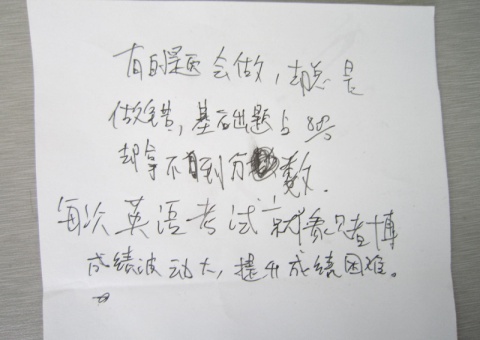 有的题会做，却总是
做错，基础题占80%
却拿不到分数.
每次英语考试就象赌博
成绩波动大，提升成绩困难。